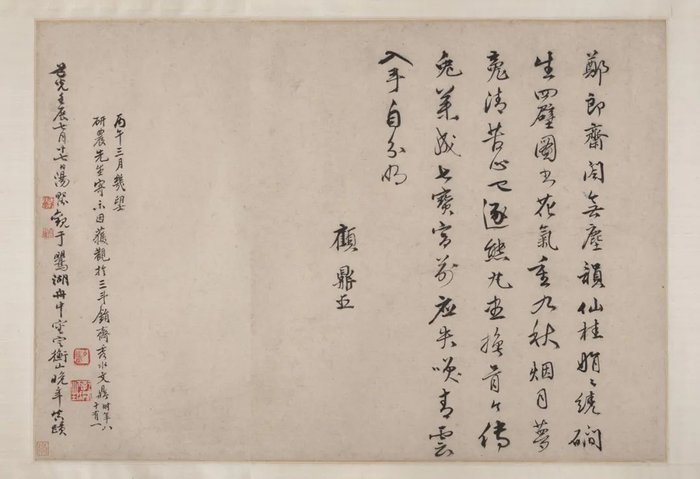 鄭郎齋閣無塵韻仙桂娟〻繞磵
生四壁圖書花氣重九秋烟月夢
魂清苦心已逐熊丸盡換骨傳
兔藥成七寶宮前應失笑青雲
入手自分明
顧鼎臣
丙午三月幾望
研農先生寄示因獲觀於三斗齋秀水文鼎時年八
十有一
道光壬辰七月十七日湯觀于鶯湖舟中定衡山晚年真蹟